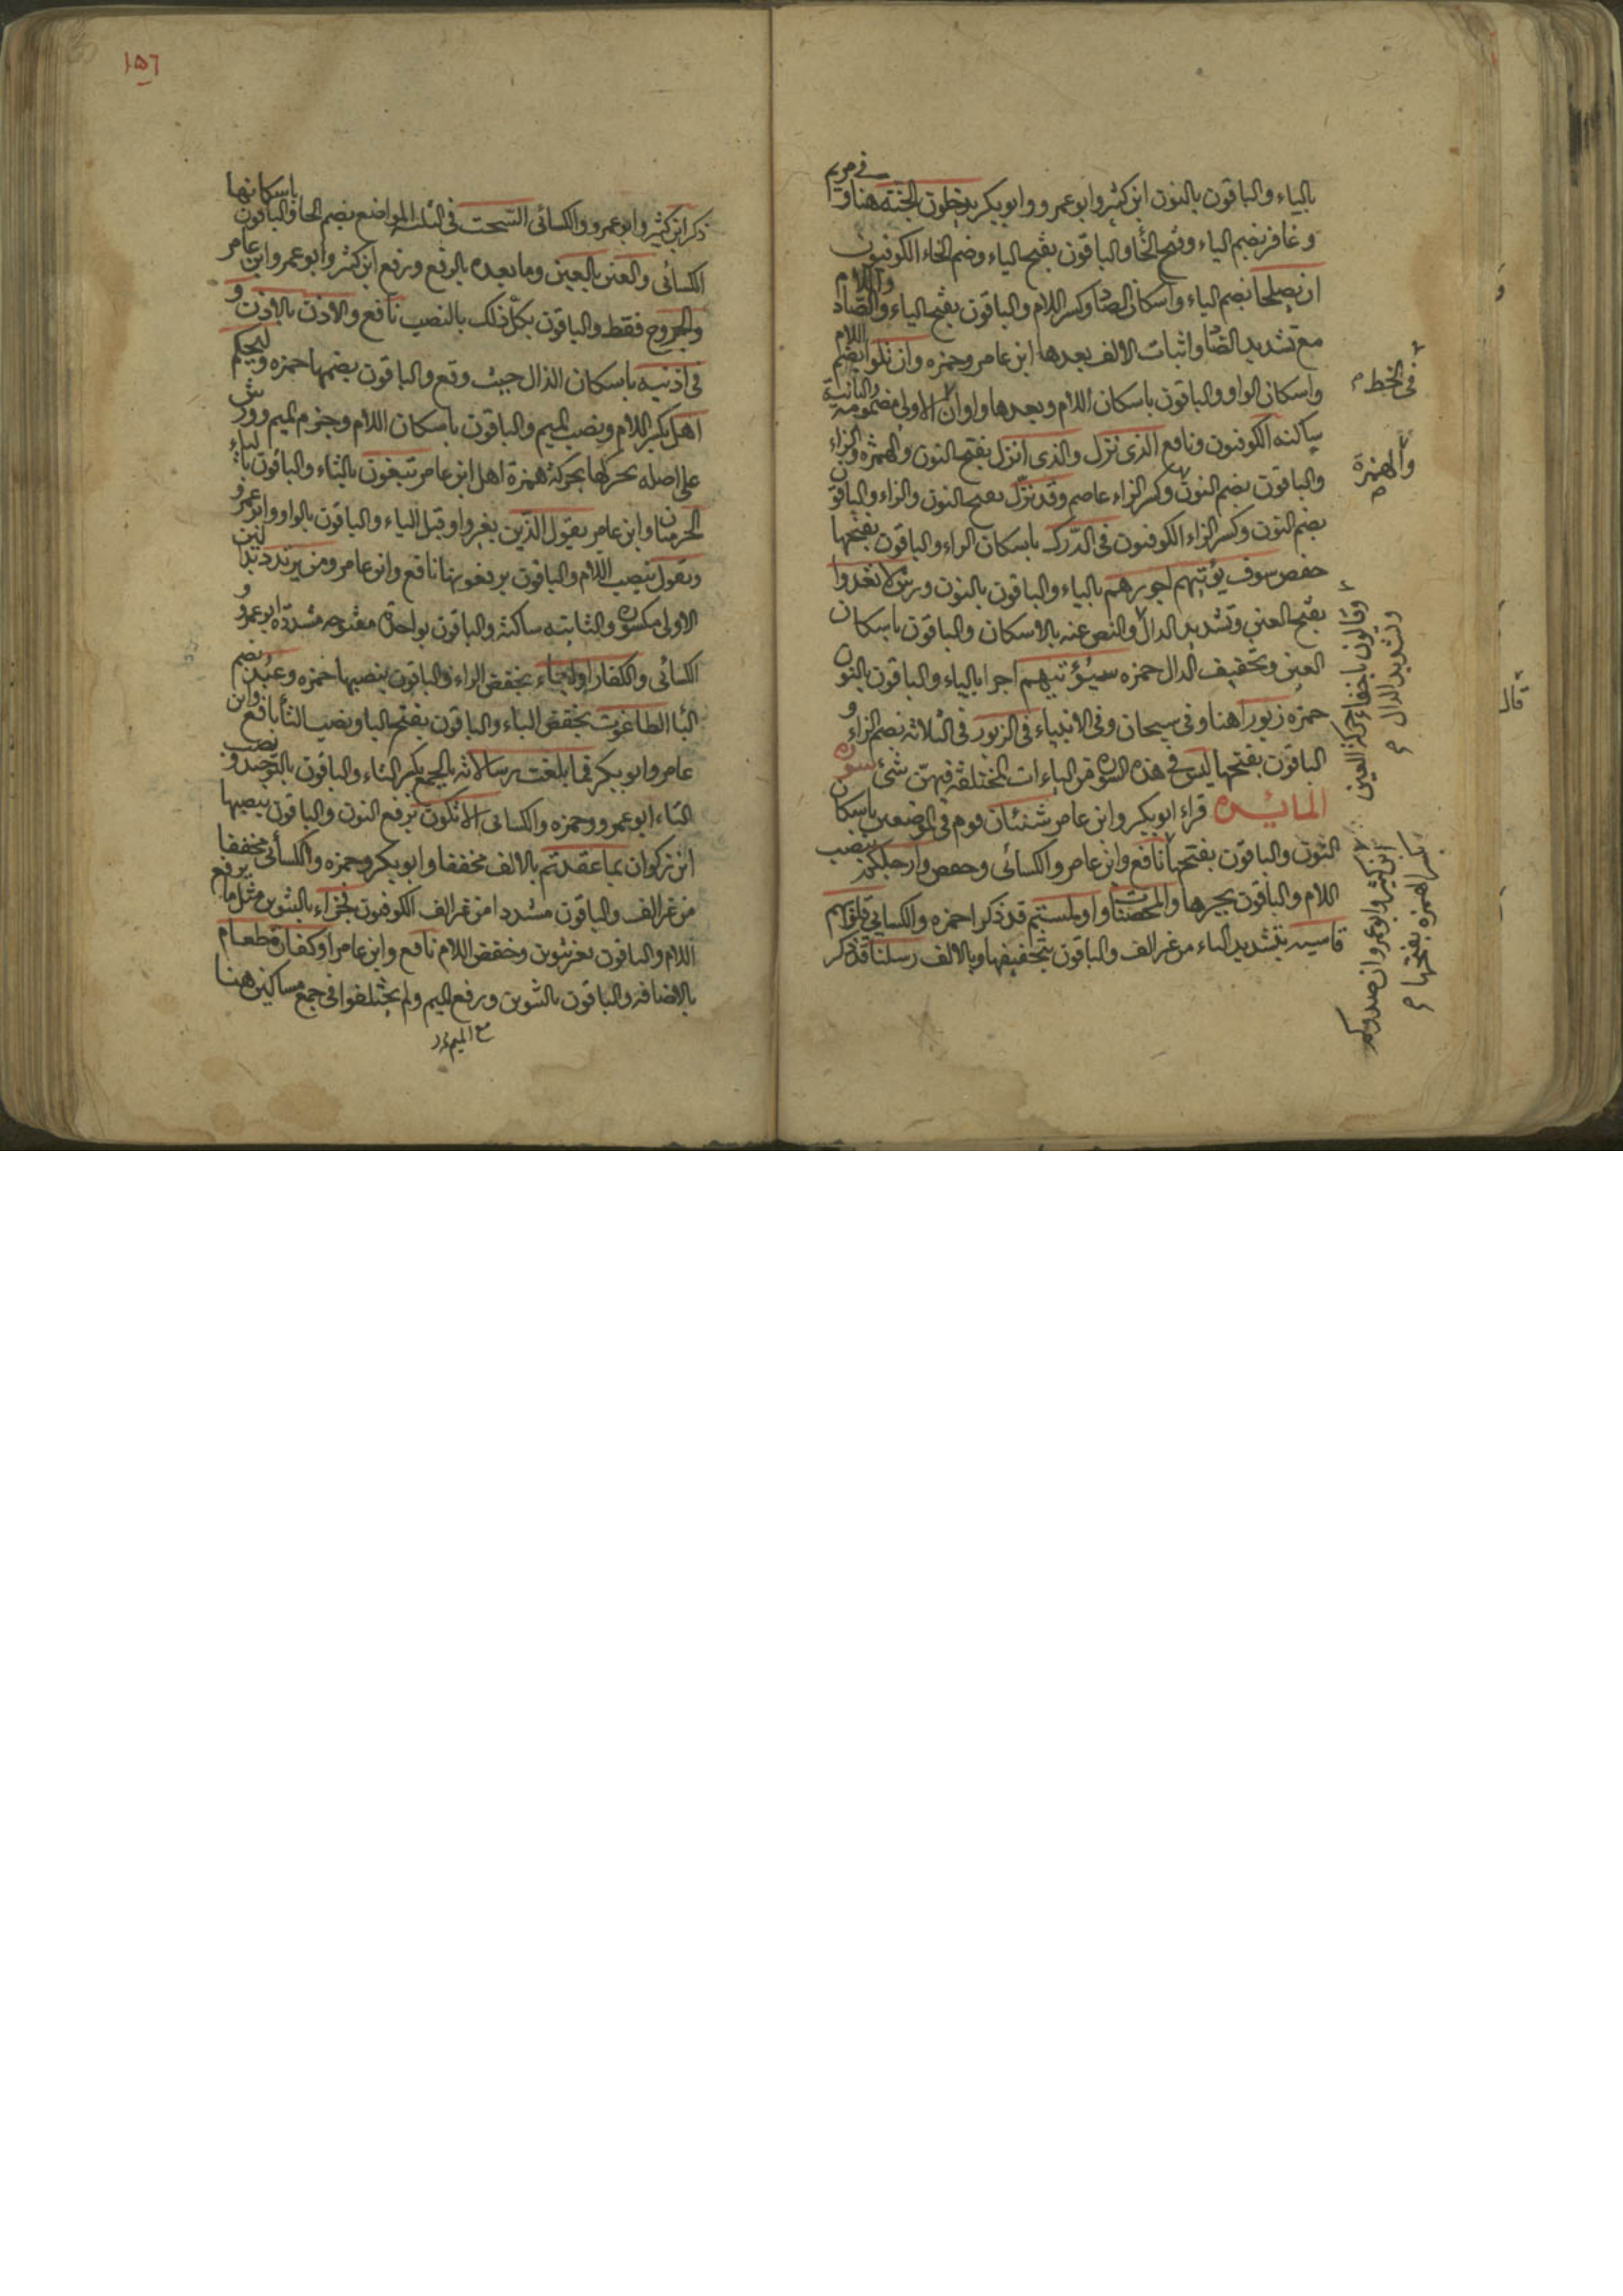 بالياء والباقون بالنون ابن كثير وابو عمرو وابو بكر يدخلون الجنة هنا و في مريم
و غافر بضم الياء وفتح الخا والباقون بفتح الياء وضم الخاء الكوفيون
ان يصلحا بضم الياء واسكان الصاد وكسر اللام والباقون بفتح الياء والصاد واللام
مع تشديد الصاد واثبات الالف بعدها ابن عامر وحمزه وان تلوا بضم اللام
واسكان الواو والباقون باسكان اللام وبعدها واوان الاولى مضمومة والثانية
ساكنه الكوفيون ونافع الذى نزل والذى انزل بفتح النون والهمزه والزاء
والباقون بضم النون وكسر الزاء عاصم وقد نزل بفتح النون والزاء والباقون
بضم النون وكسر الزاء الكوفيون فى الدرك باسكان الراء والباقون بفتحها
حفص سوف يؤتيهم اجورهم بالياء والباقون بالنون ورش لا تعدوا
بفتح العين وتشديد الدال والنص عنه بالاسكان والباقون باسكان
العين وتخفيف الدال حمزه سيؤتيهم اجرا بالياء والباقون بالنون
حمزه زبورا هنا وفى سبحان وفى الانبياء فى الزبور فى الثلاثه بضم الزاء و
الباقون بفتحها ليس فى هذه السوره من الياءات المختلف فيهن شئ سوره
المائده قراء ابو بكر وابن عامر شنئان قوم فى الموضعين باسكان
النون والباقون بفتحها نافع وابن عامر والكسائى وحفص وارجلكم بنصب
اللام والباقون بجرها والمحصنات او لمستم قد ذكر احمزه والكسائي قلوبهم
قاسيه بتشديد الياء من غير الف والباقون بتخفيفها وبالالف رسلنا قد ذكر
فى الخط
والهمزة
وقالون باخفاء حركة العين
وتشديد الدال
ابن كثير وابو عمرو ان صدوكم
بكسر الهمزه بفتحها
قال
١٥٦
ذكر ابن كثير وابو عمرو والكسائى السحت فى الثلثه المواضع بضم الحا والباقون باسكانها
الكسائى والعين بالعين وما بعده بالرفع ورفع ابن كثير وابو عمرو وابن عامر
والجروح فقط والباقون بكل ذلك بالنصب نافع والاذن بالاذن و
فى اذنيه باسكان الذال حيث وقع والباقون بضمها حمزه وليحكم
اهل بكسر اللام ونصب الميم والباقون باسكان اللام وجزم الميم وورش
على اصله يحركها بحركة همزة اهل ابن عامر تبغون بالتاء والباقون بالياء
الحرميان وابن عامر يقول الذين بغير واو قبل الياء والباقون بالواو وابو عمرو
ويقول بنصب اللام والباقون يرفعونها نافع وابن عامر ومن يرتدد بدالين
الاولى مكسوره والثانيه ساكنه والباقون بواحدة مفتوحه مشدده ابو عمرو و
الكسائى والكفار اولياء بخفض الراء والباقون بنصبها حمزه وعبد بضم
البا الطاغوت بخفض التاء والباقون بفتح البا ونصب التا نافع وابن
عامر وابو بكر فما بلغت رسالاته بالجمع بكسر التاء والباقون بالتوحيد ونصب
التاء ابو عمرو وحمزه والكسائى الا تكون برفع النون والباقون بنصبها
ابن ذكوان بما عقدتم بالالف مخففا وابو بكر وحمزه والكسائى مخففا
من غير الف والباقون مشددا من غير الف الكوفيون فجزاء بالتنوين مثل ما برفع
اللام والباقون بغير تنوين وخفض اللام نافع وابن عامر او كفارة طعام
بالاضافه والباقون بالتنوين ورفع الميم ولم يختلفوا فى جمع مساكين هنا